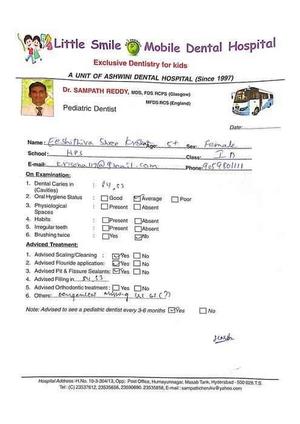 Little Smile Mobile Dental Hospital
Exclusive Dentistry for kids
A UNIT OF ASHWINI DENTAL HOSPITAL (Since 1997)
Dr. SAMPATH REDDY, MDS, FDS RCPS (Glasgow)
MFDS RCS (England)
Pediatric Dentist
Date:
Name: Shree Age: 5+ Sex: Female
School: HPS Class: I D
E-mail: Phone:
On Examination:
1. Dental Caries in (Cavities) : 84, 53
2. Oral Hygiene Status : Good Average Poor
3. Physiological Spaces : Present Absent
4. Habits : Present Absent
5. Irregular teeth : Present Absent
6. Brushing twice : Yes No
Adviced Treatment:
1. Advised Scaling/Cleaning : Yes No
2. Advised Flouride application: Yes No
3. Advised Pit & Fissure Sealants: Yes No
4. Advised Filling in 84, 53
5. Advised Orthodontic treatment : Yes No
6. Others: congenital missing (?)
Note: Advised to see a pediatric dentist every 3-6 months Yes No
Hospital Address :H.No. 10-3-304/13, Opp: Post Office, Humayunnagar, Masab Tank, Hyderabad - 500 028.T.S.
Tel: (C) 23537612, 23535656, 23590690, 23535858, E-mail: